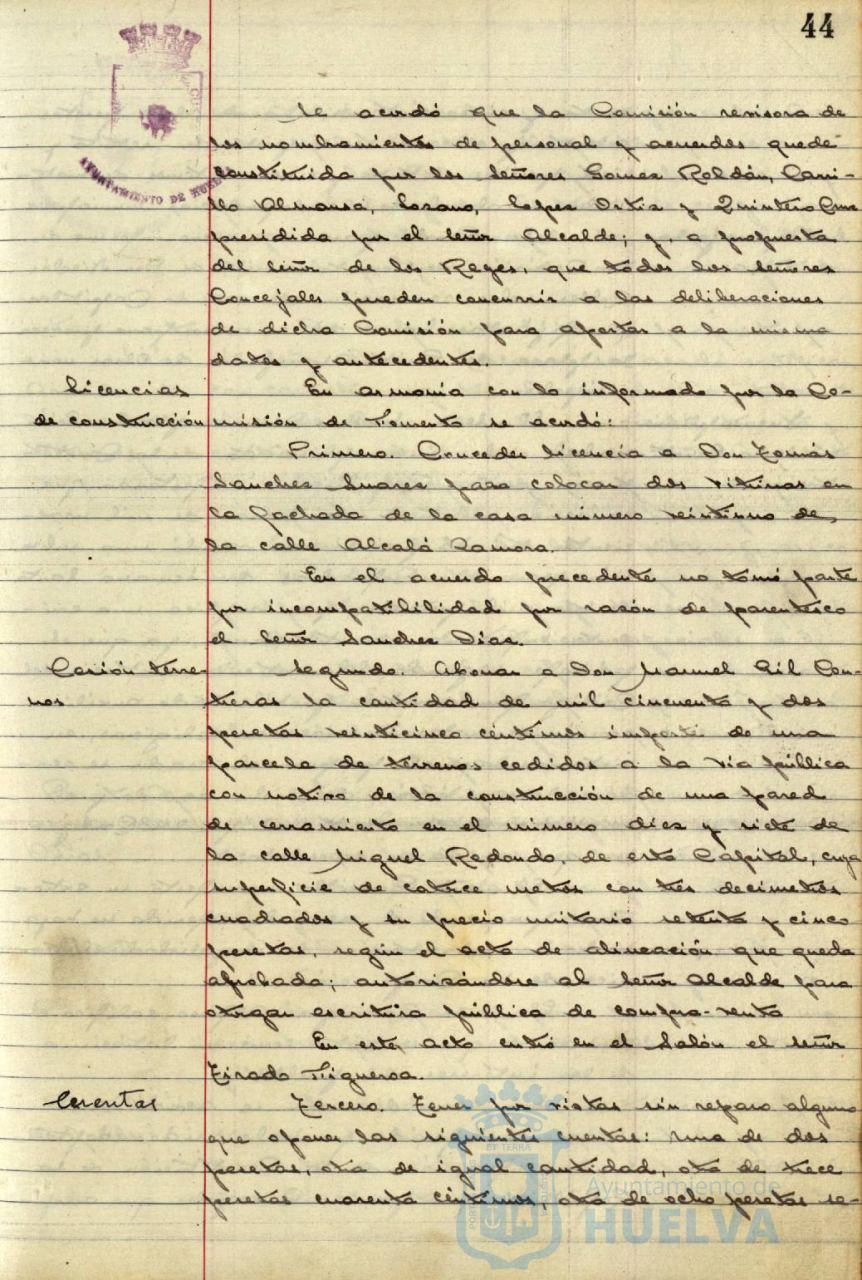 44
AYUNTAMIENTO DE HUELVA
Se acordó que la Comisión revisora de
los nombramientos de personal y acuerdos quede
constituida por los señores Gomez Roldán, Carri-
llo Almansa, Lozano, Lopez Ortiz y Quintero Cruz
presidida por el señor Alcalde; y, a propuesta
del señor de los Reyes, que todos los señores
Concejales pueden concurrir a las deliberaciones
de dicha Comisión para aportar a la misma
datos y antecedentes.
Licencias
de construcción
En armonía con lo informado por la Co-
misión de Fomento se acordó:
Primero. Conceder licencia a Don Tomás
Sanchez Suarez para colocar dos vitrinas en
la fachada de la casa número veintiuno de
la calle Alcalá Zamora.
En el acuerdo precedente no tomó parte
por incompatibilidad por razón de parentesco
el señor Sanchez Diaz.
Cesión terre-
nos
Segundo. Abonar a Don Manuel Gil Con-
treras la cantidad de mil cincuenta y dos
pesetas veinticinco céntimos importe de una
parcela de terrenos cedidos a la vía pública
con motivo de la construcción de una pared
de cerramiento en el número diez y siete de
la calle Miguel Redondo, de esta Capital, cuya
superficie de catorce metros con tres decimetros
cuadrados y su precio unitario setenta y cinco
pesetas, según el acta de alineación que queda
aprobada; autorizándose al señor Alcalde para
otorgar escritura pública de compra-venta
En este acto entró en el Salón el señor
Tirado Figueroa.
Cuentas
Tercero. Tener por vistas sin reparo alguno
que oponer las siguientes cuentas: una de dos
pesetas, otra de igual cantidad, otra de trece
pesetas cuarenta céntimos, otra de ocho pesetas se-
Ayuntamiento de
HUELVA